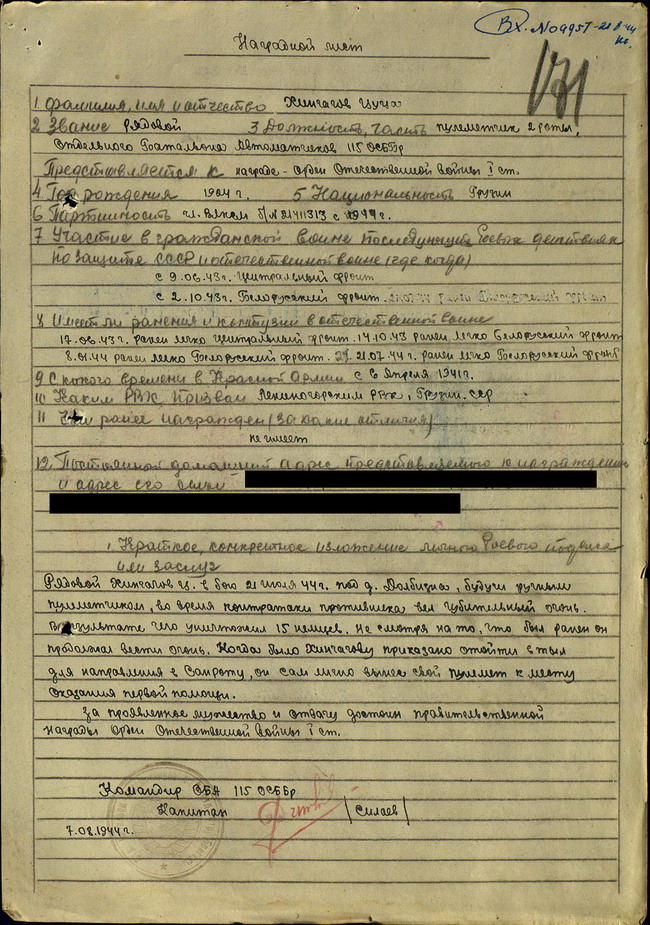 Вх. №0995
Наградной лист
131
1 Фамилия, имя и отчество Хинчагов Цуца
2 Звание рядовой 3 Должность, часть пулеметчик 2 роты
Отдельного Батальона Автоматчиков 115 ОСББр
Представляется к награде - Орден Отечественной Войны I ст.
4 Год рождения 1904 г. 5 Национальность Грузин
6 Партийность чл. ВЛКСМ с
7 Участие в гражданской войне последующих боевых действиях
по защите СССР и отечественной войне (где когда)
с 9.06.43г. Центральный фронт
с 2.10.43г. Белорусский фронт
8 Имеет ли ранения и контузии в отечественной войне
17.06.43г. ранен легко Центральный фронт. 14.10.43 ранен легко Белорусский фронт
8.01.44 ранен легко Белорусский фронт. 21.07.44 г. ранен легко Белорусский фронт
9 С какого времени в Красной Армии с 6 Апреля 1941г.
10 Каким РВК призван Лениногорским РВК, Грузин. ССР
11 Чем ранее награжден (за какие отличия)
не имеет
12. Постоянной домашний адрес представляемого к награждению
и адрес его семьи
1 Краткое, конкретное изложение личного боевого подвига
или заслуг
Рядовой Хинчагов Ц. в бою 21 июля 44г. под д. Долбизна, будучи ручным
пулеметчиком, во время контратаки противника вел губительный огонь.
В результате чего уничтожил 15 немцев. Не смотря на то, что был ранен он
продолжал вести огонь. Когда было Хинчагову приказано отойти в тыл
для направления в Санроту, он сам лично вынес свой пулемет к месту
оказания первой помощи.
За проявленное мужество и отвагу достоин правительственной
награды Орден Отечественной войны I ст.
Командир ОБА 115 ОСББр
Капитан /Силаев/
7.08.1944г.